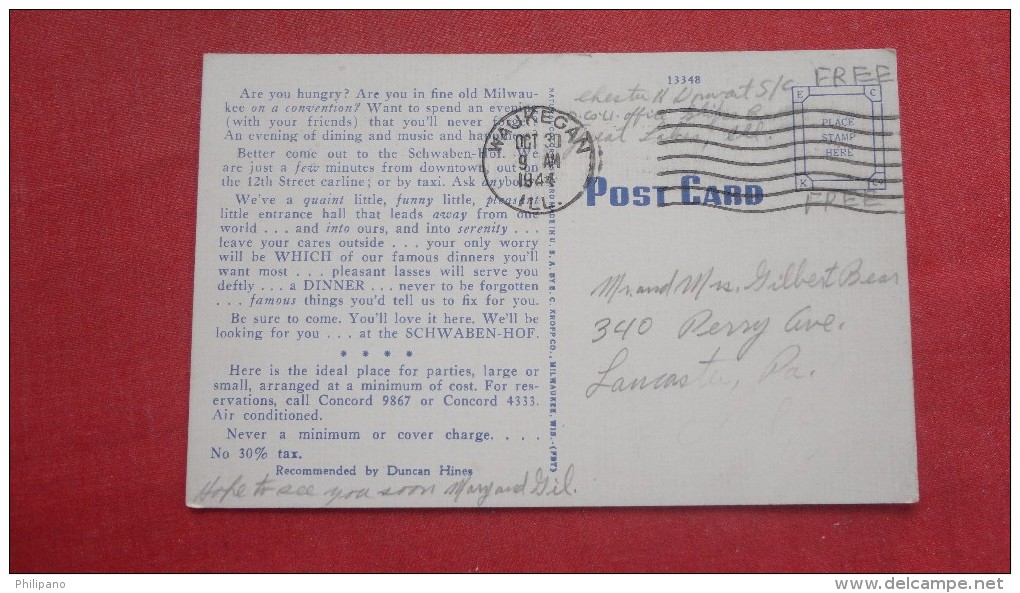 Are you hungry? Are you in fine old Milwau-
kee on a convention? Want to spend an evening
(with your friends) that you'll never forget?
An evening of dining and music and happiness?
Better come out to the Schwaben-Hof. We
are just a few minutes from downtown, out on
the 12th Street carline; or by taxi. Ask anybody.
We've a quaint little, funny little, pleasant
little entrance hall that leads away from one
world . . . and into ours, and into serenity . . .
leave your cares outside . . . your only worry
will be WHICH of our famous dinners you'll
want most . . . pleasant lasses will serve you
deftly . . . a DINNER . . . never to be forgotten
. . . famous things you'd tell us to fix for you.
Be sure to come. You'll love it here. We'll be
looking for you . . . at the SCHWABEN-HOF.
* * * *
Here is the ideal place for parties, large or
small, arranged at a minimum of cost. For res-
ervations, call Concord 9867 or Concord 4333.
Air conditioned.
Never a minimum or cover charge. . . .
No 30% tax.
Recommended by Duncan Hines
Hope to see you soon Mary and Gil.
E. C. KROPP CO., MILWAUKEE, WIS.
WAUKEGAN
OCT 31
9 AM
1944
ILL.
13348
FREE
E C
PLACE
STAMP
HERE
K Co
FREE
POST CARD
Mr. and Mrs. Gilbert Bear
340 Perry Ave.
Lancaster, Pa.
Philipano
http://www.delcampe.net